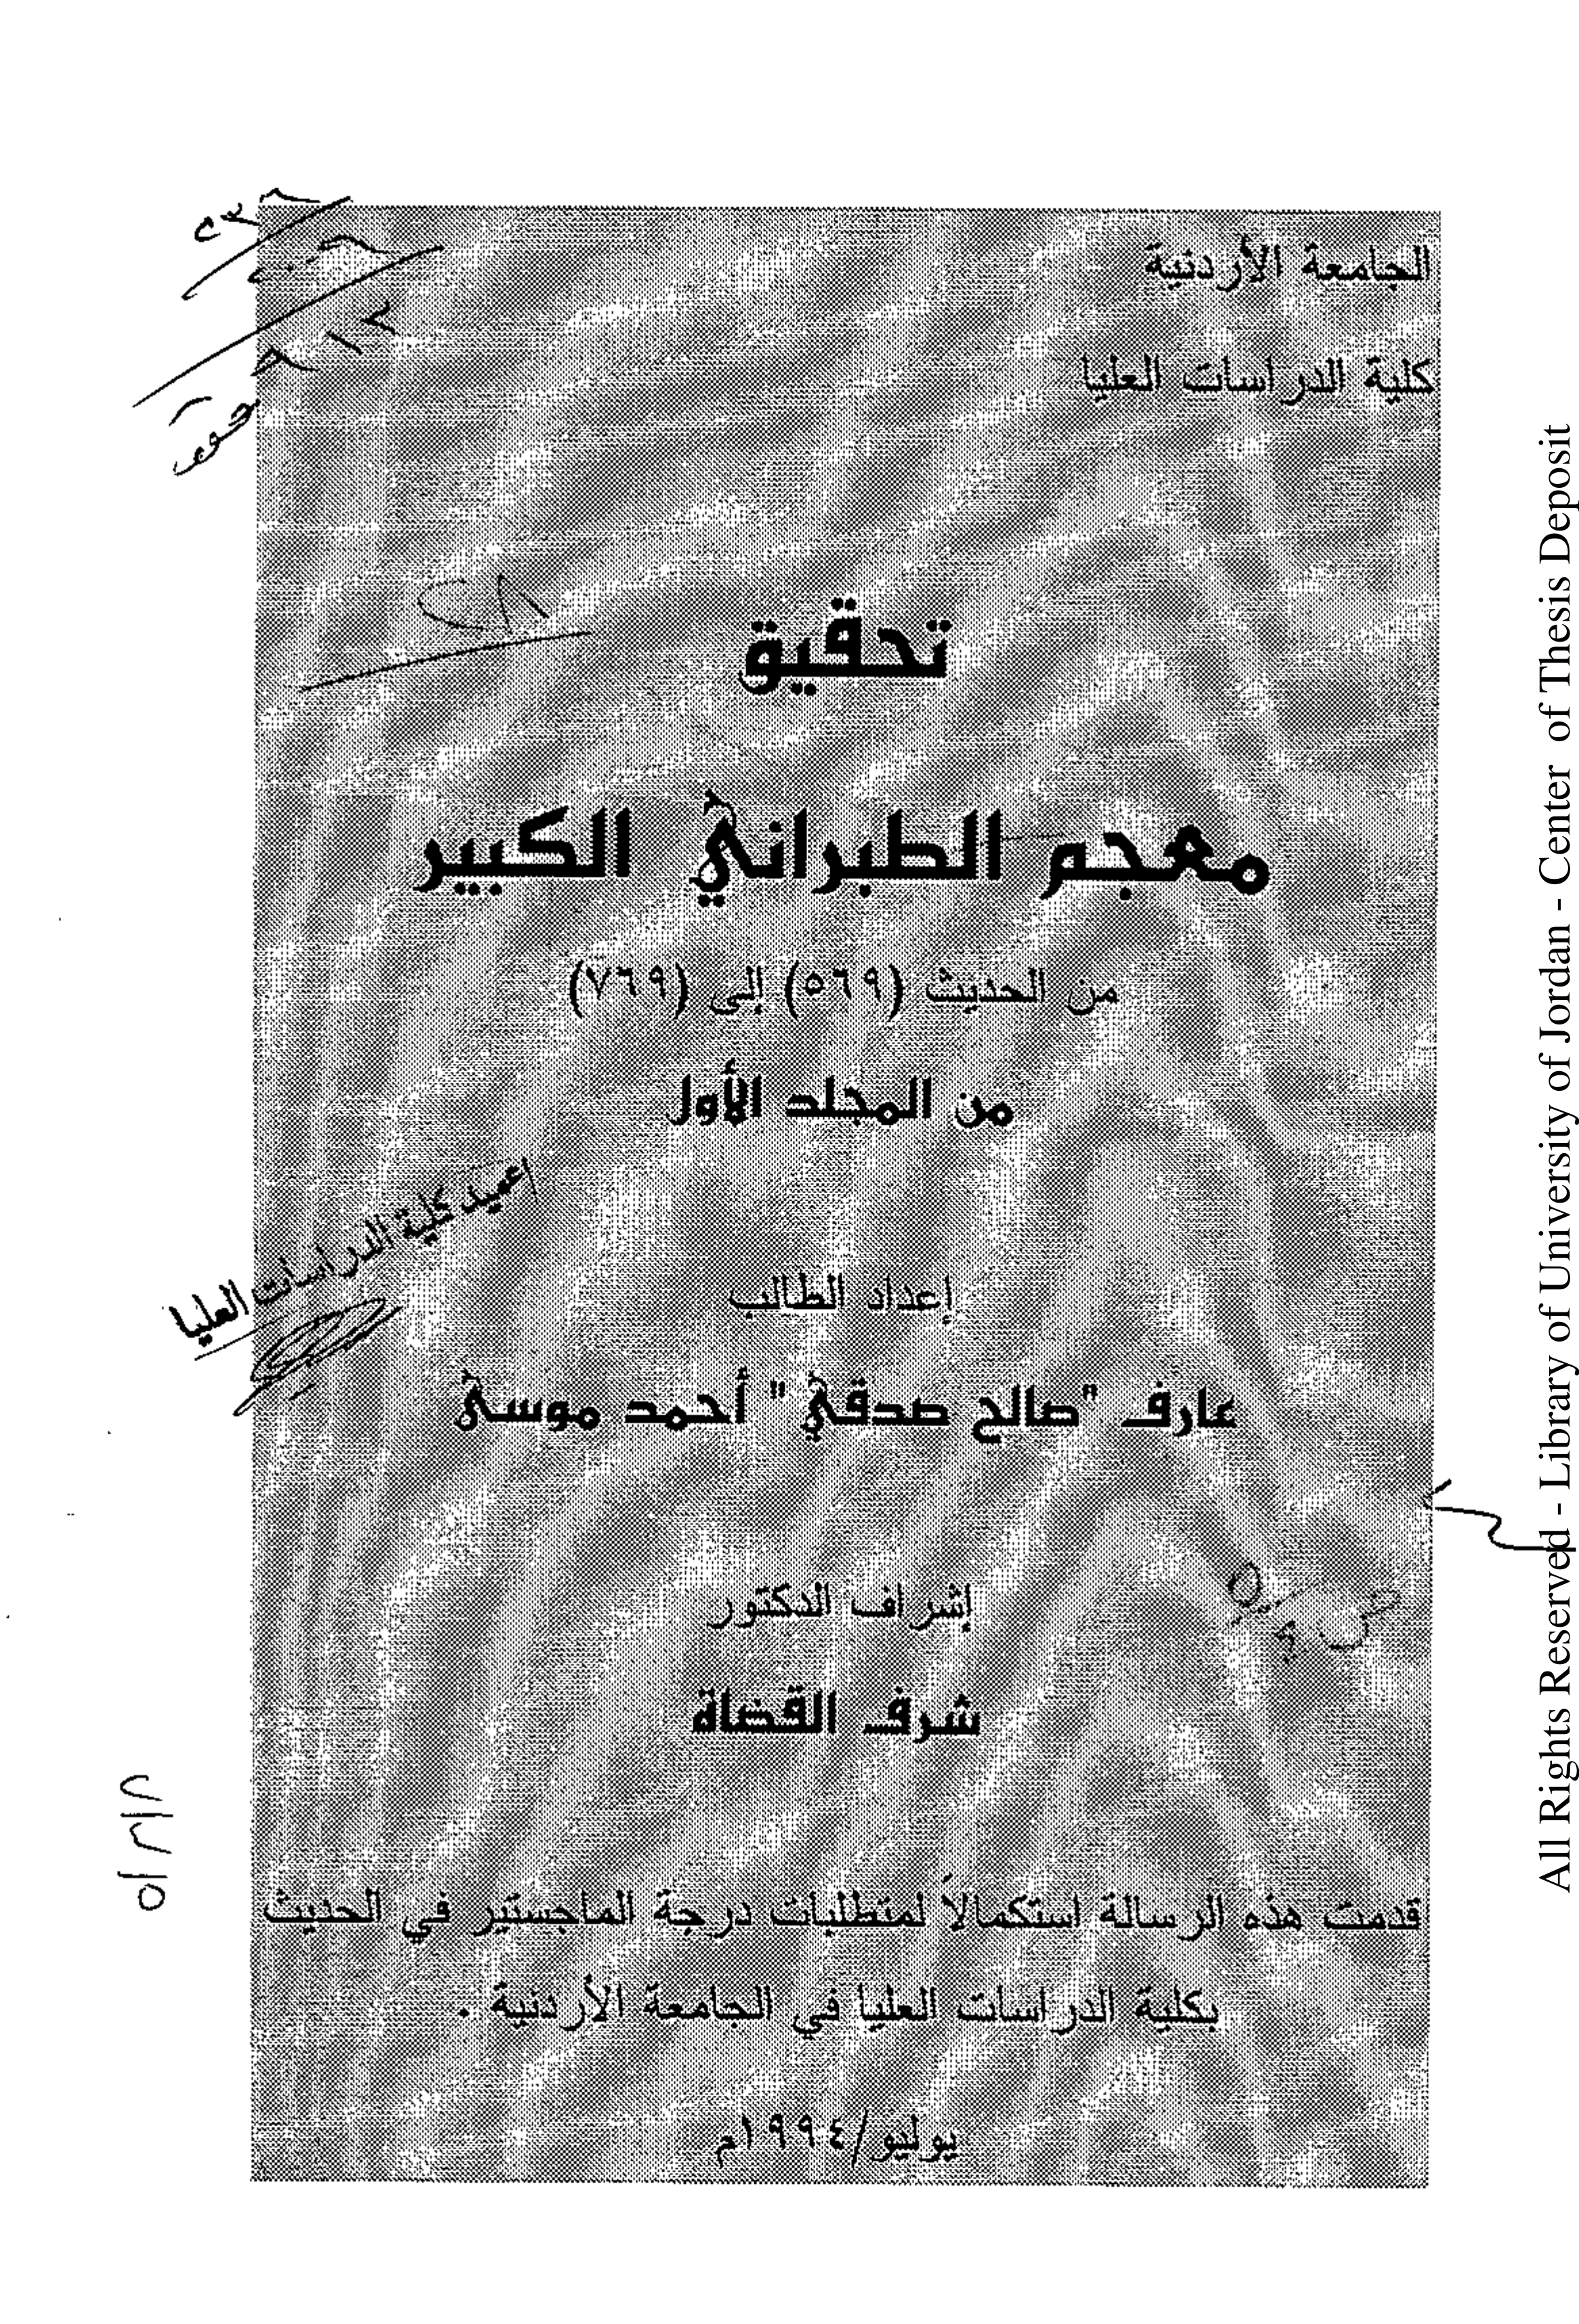 الجامعة الأردنية
كلية الدراسات العليا
تحقيق
معجم الطبراني الكبير
من الحديث (٥٦٩) إلى (٧٦٩)
من المجلد الأول
عميد كلية الدراسات العليا
إعداد الطالب
عارف "صالح صدقي" أحمد موسى
إشراف الدكتور
شرف القضاة
قدمت هذه الرسالة استكمالاً لمتطلبات درجة الماجستير في الحديث
بكلية الدراسات العليا في الجامعة الأردنية .
يوليو/١٩٩٤م
All Rights Reserved - Library of University of Jordan - Center of Thesis Deposit